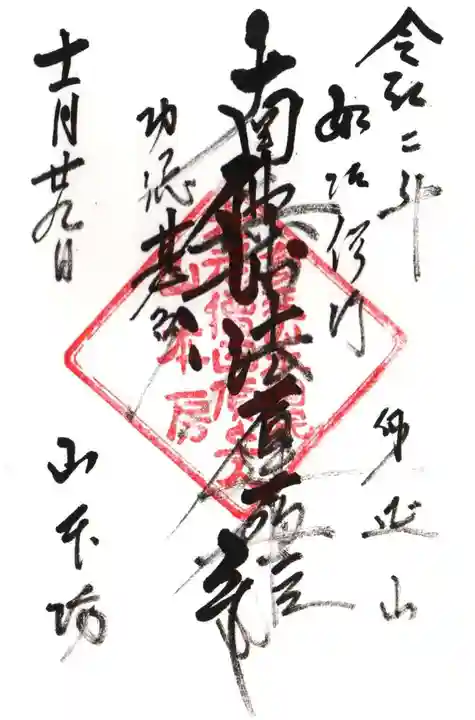 令和二年
身延山
如説修行
南無妙法蓮華経
功徳甚多
十一月廿九日
山本坊